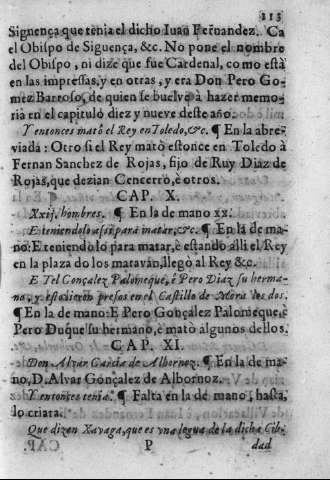 113
Siguença que tenia el dicho Iuan Fernandez. Ca
el Obispo de Siguença, &c. No pone el nombre
del Obispo, ni dize que fue Cardenal, como está
en las impressas, y en otras, y era Don Pero Go-
mez Barroso, de quien se buelve à hazer memo-
ria en el capitulo diez y nueve deste año.
Y entonces matò el Rey en Toledo, &c. ¶ En la abre-
viada: Otro si el Rey matò estonce en Toledo à
Fernan Sanchez de Rojas, fijo de Ruy Diaz de
Rojas, que dezian Cencerro, è otros.
CAP. X.
Xxij. hombres. ¶ En la de mano xx.
E teniendolo assi para matar, &c. ¶ En la de ma-
no: E teniendolo para matar, è estando alli el Rey
en la plaza do los matavan, llegò al Rey &c.
E Tel Gonçalez Palomeque, è Pero Diaz su herma-
no, y estovieron presos en el Castillo de Mora los dos.
¶ En la de mano: E Pero Gonçalez Palomeque, è
Pero Duque su hermano, è matò algunos dellos.
CAP. XI.
Don Alvar Garcia de Albornoz. ¶ En la de ma-
no, D. Alvar Gonçalez de Albornoz.
Y entonces tenia. ¶ Falta en la de mano, hasta,
lo criara.
Que dizen Xavaga, que es vna legua de la dicha Cib-
P dad
CAP.